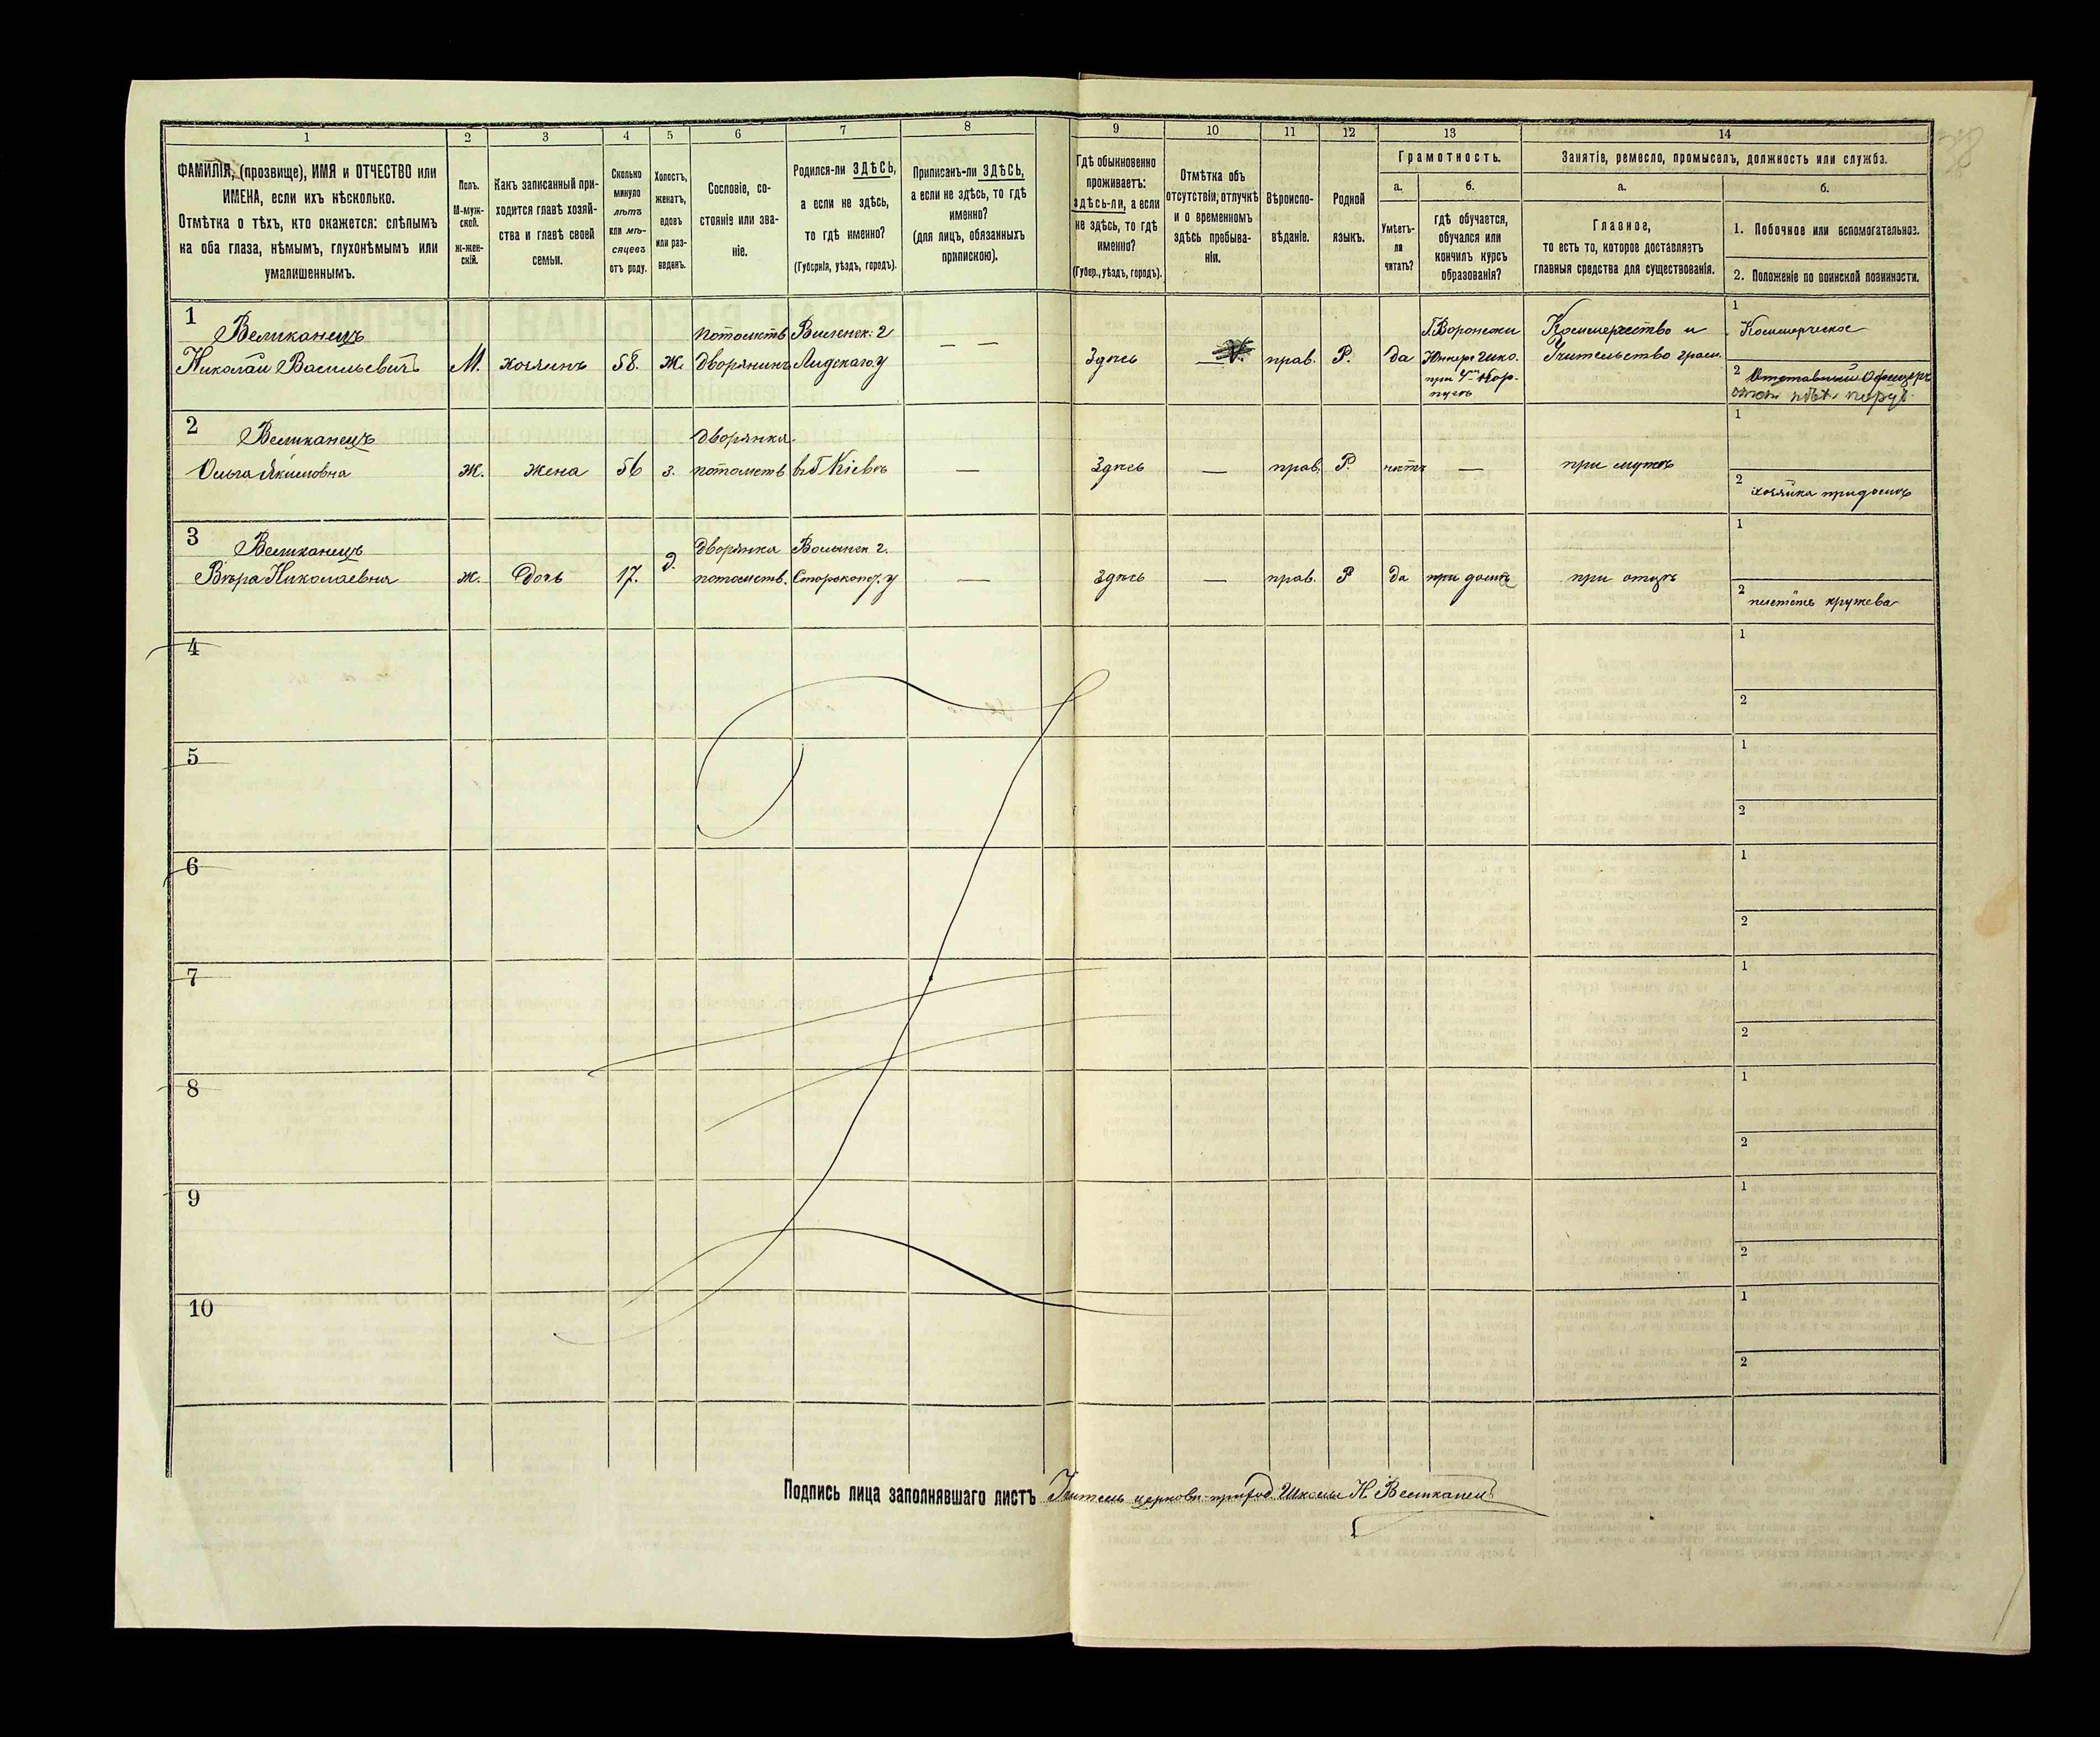 1 2 3 4 5 6 7 8 9 10 11 12 13 14
ФАМИЛІЯ, (прозвище), ИМЯ и ОТЧЕСТВО или
ИМЕНА, если ихъ нѣсколько.
Отмѣтка о тѣхъ, кто окажется: слѣпымъ
на оба глаза, нѣмымъ, глухонѣмымъ или
умалишеннымъ.
Полъ.
М-муж-
ской.
Ж-жен-
скій.
Какъ записанный при-
ходится главѣ хозяй-
ства и главѣ своей
семьи.
Сколько
минуло
лѣтъ
или мѣ-
сяцевъ
отъ роду.
Холостъ,
женатъ,
вдовъ
или раз-
веденъ.
Сословіе, со-
стояніе или зва-
ніе.
Родился-ли ЗДѢСЬ,
а если не здѣсь,
то гдѣ именно?
(Губернія, уѣздъ, городъ).
Приписанъ-ли ЗДѢСЬ,
а если не здѣсь, то гдѣ
именно?
(для лицъ, обязанныхъ
припискою).
Гдѣ обыкновенно
проживаетъ:
здѣсь-ли, а если
не здѣсь, то гдѣ
именно?
(Губер., уѣздъ, городъ).
Отмѣтка объ
отсутствіи, отлучкѣ
и о временномъ
здѣсь пребыва-
ніи.
Вѣроиспо-
вѣданіе.
Родной
языкъ.
Грамотность.
а.
Умѣетъ-
ли
читать?
б.
гдѣ обучается,
обучался или
кончилъ курсъ
образованія?
Занятіе, ремесло, промыселъ, должность или служба.
а.
Главное,
то есть то, которое доставляетъ
главныя средства для существованія.
б.
1. Побочное или вспомогательное.
2. Положеніе по воинской повинности.
1
Великанецъ
Николай Васильевичъ
М.
хозяинъ
58.
Ж.
потомств
Дворянинъ
Виленск: г
Лидскаго. У
— —
Здѣсь
—
прав.
Р.
да
Г. Воронежи
Юнкерс школ.
Коммерчество и
Учительство грам.
1
Коммерческое
2 Отставный Офицеръ
2
Великанецъ
Ольга Якимовна
Ж.
Жена
56
з.
Дворянка.
потомств
въ Г Кіевѣ
—
Здѣсь
—
прав.
Р.
нѣтъ
—
при мужѣ
1
2
хозяйка при домѣ
3
Великанецъ
Вѣра Николаевна
Ж.
Дочь
17.
д.
Дворянка
потомств.
Волынск г.
—
здѣсь
—
прав.
Р
да
при домѣ
при отцѣ
1
2
плететъ кружева
4
1
2
5
1
2
6
1
2
7
1
2
8
1
2
9
1
2
10
1
2
Подпись лица заполнявшаго листъ Учитель церковн-приход. Школы Н. Великанецъ